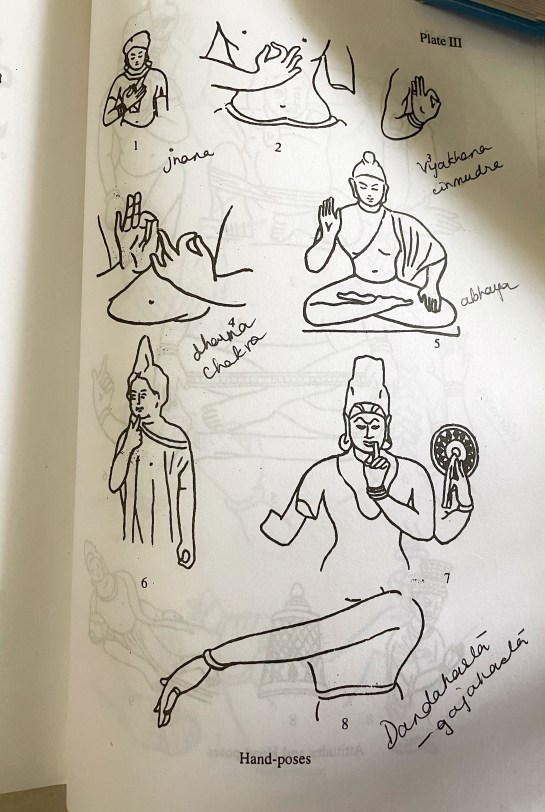 Plate III
1
jnana
2
3
Vyakhana
cinmudre
4
dharma
chakra
5
abhaya
6
7
8
Dandahastā
- gajahastā
Hand-poses